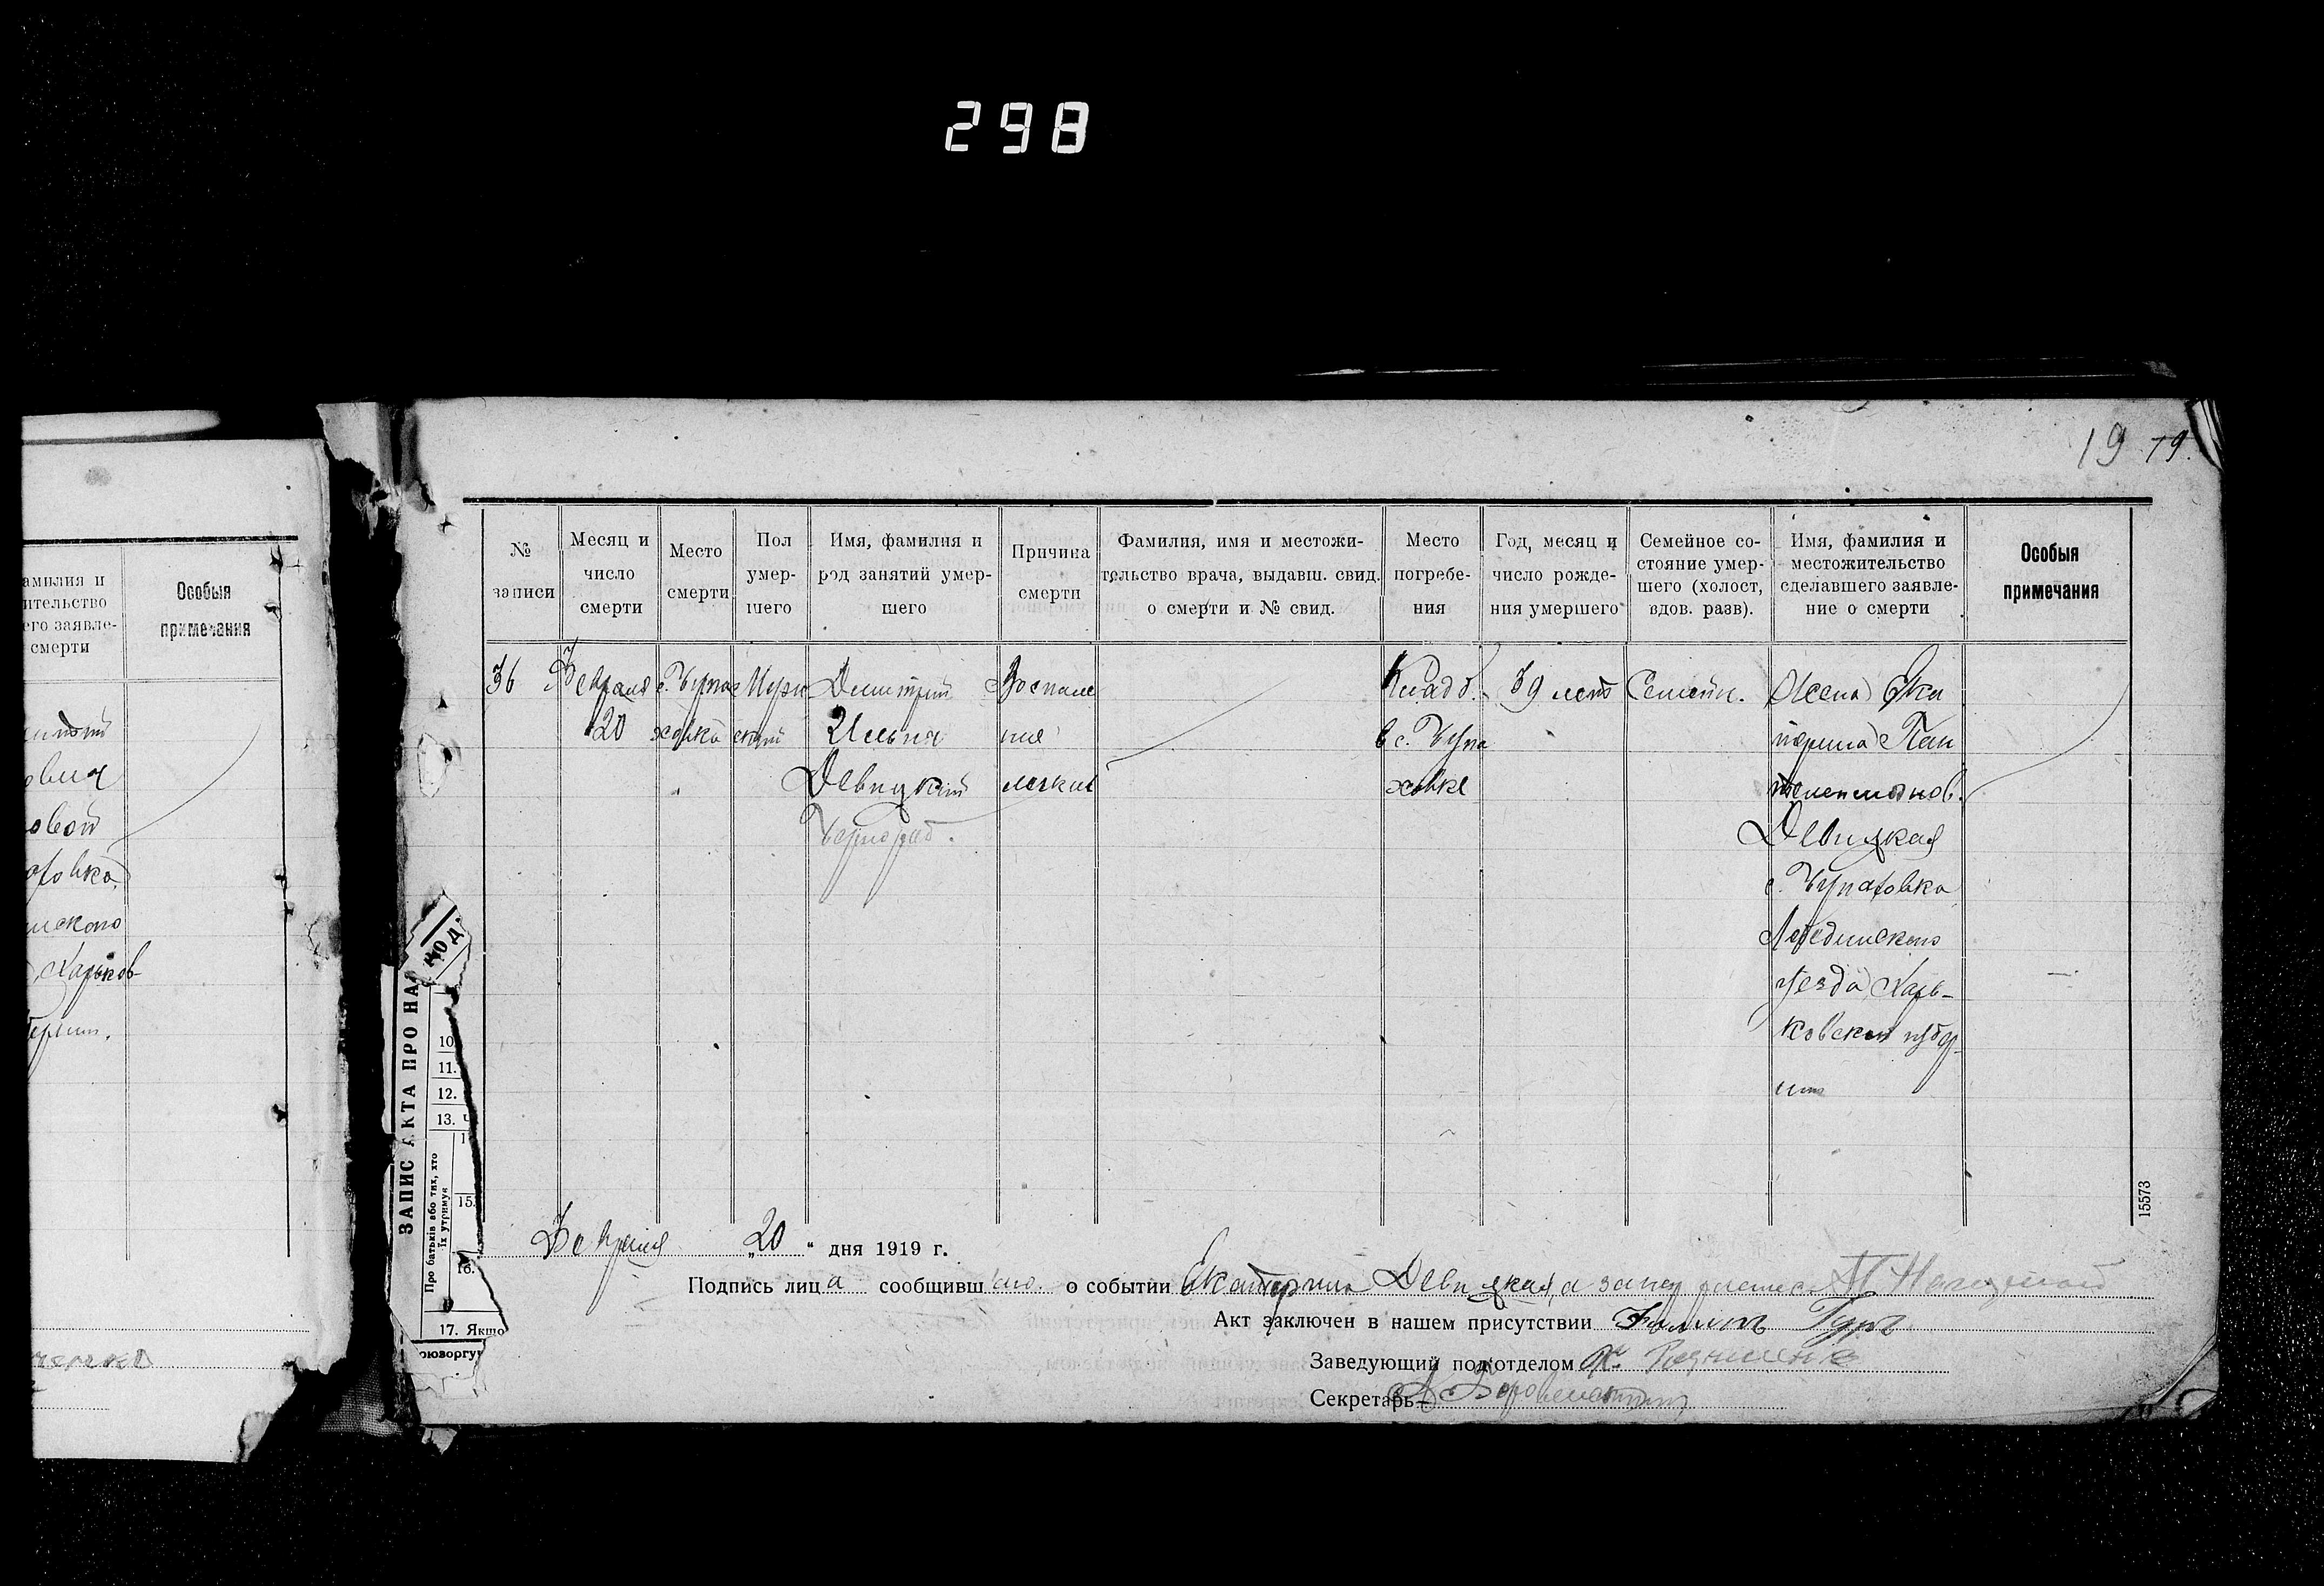 298
19 19.
амилия и
ительство
его заявле-
смерти
Особыя
примечания
ович
овой
Харьков-
№
записи
Месяц и
число
смерти
Место
смерти
Пол
умер-
шего
Имя, фамилия и
род занятий умер-
шего
Причина
смерти
Фамилия, имя и местожи-
тельство врача, выдавш. свид.
о смерти и № свид.
Место
погребе-
ния
Год, месяц и
число рожде-
ния умершего
Семейное со-
стояние умер-
шего (холост,
вдов. разв).
Имя, фамилия и
местожительство
сделавшего заявле-
ние о смерти
Особыя
примечания
36
Февраля
20
с. Чупа
ховка
Муж
ский
Димитрий
Ильич
Девицкий
Чернораб.
Воспале
ние
легких
Кладб.
в с. Чупа
ховке
39 лет
Семейн.
Жена Ека
терина Пан
телеимонов.
Девицкая
с. Чупаховка
Лебединского
уезда Харь-
ковской губер
нии
15573
ЗАПИС АКТА ПРО НА
Про батьків або тих, хто
їх утримує
10.
11.
12.
13.
15.
16.
17. Якщо
Февраля „20“ дня 1919 г.
Подпись лица сообщивш о событии Екатерина Девицкая, а за нер
Акт заключен в нашем присутствии Гуръ
Заведующий подотделом
Секретарь